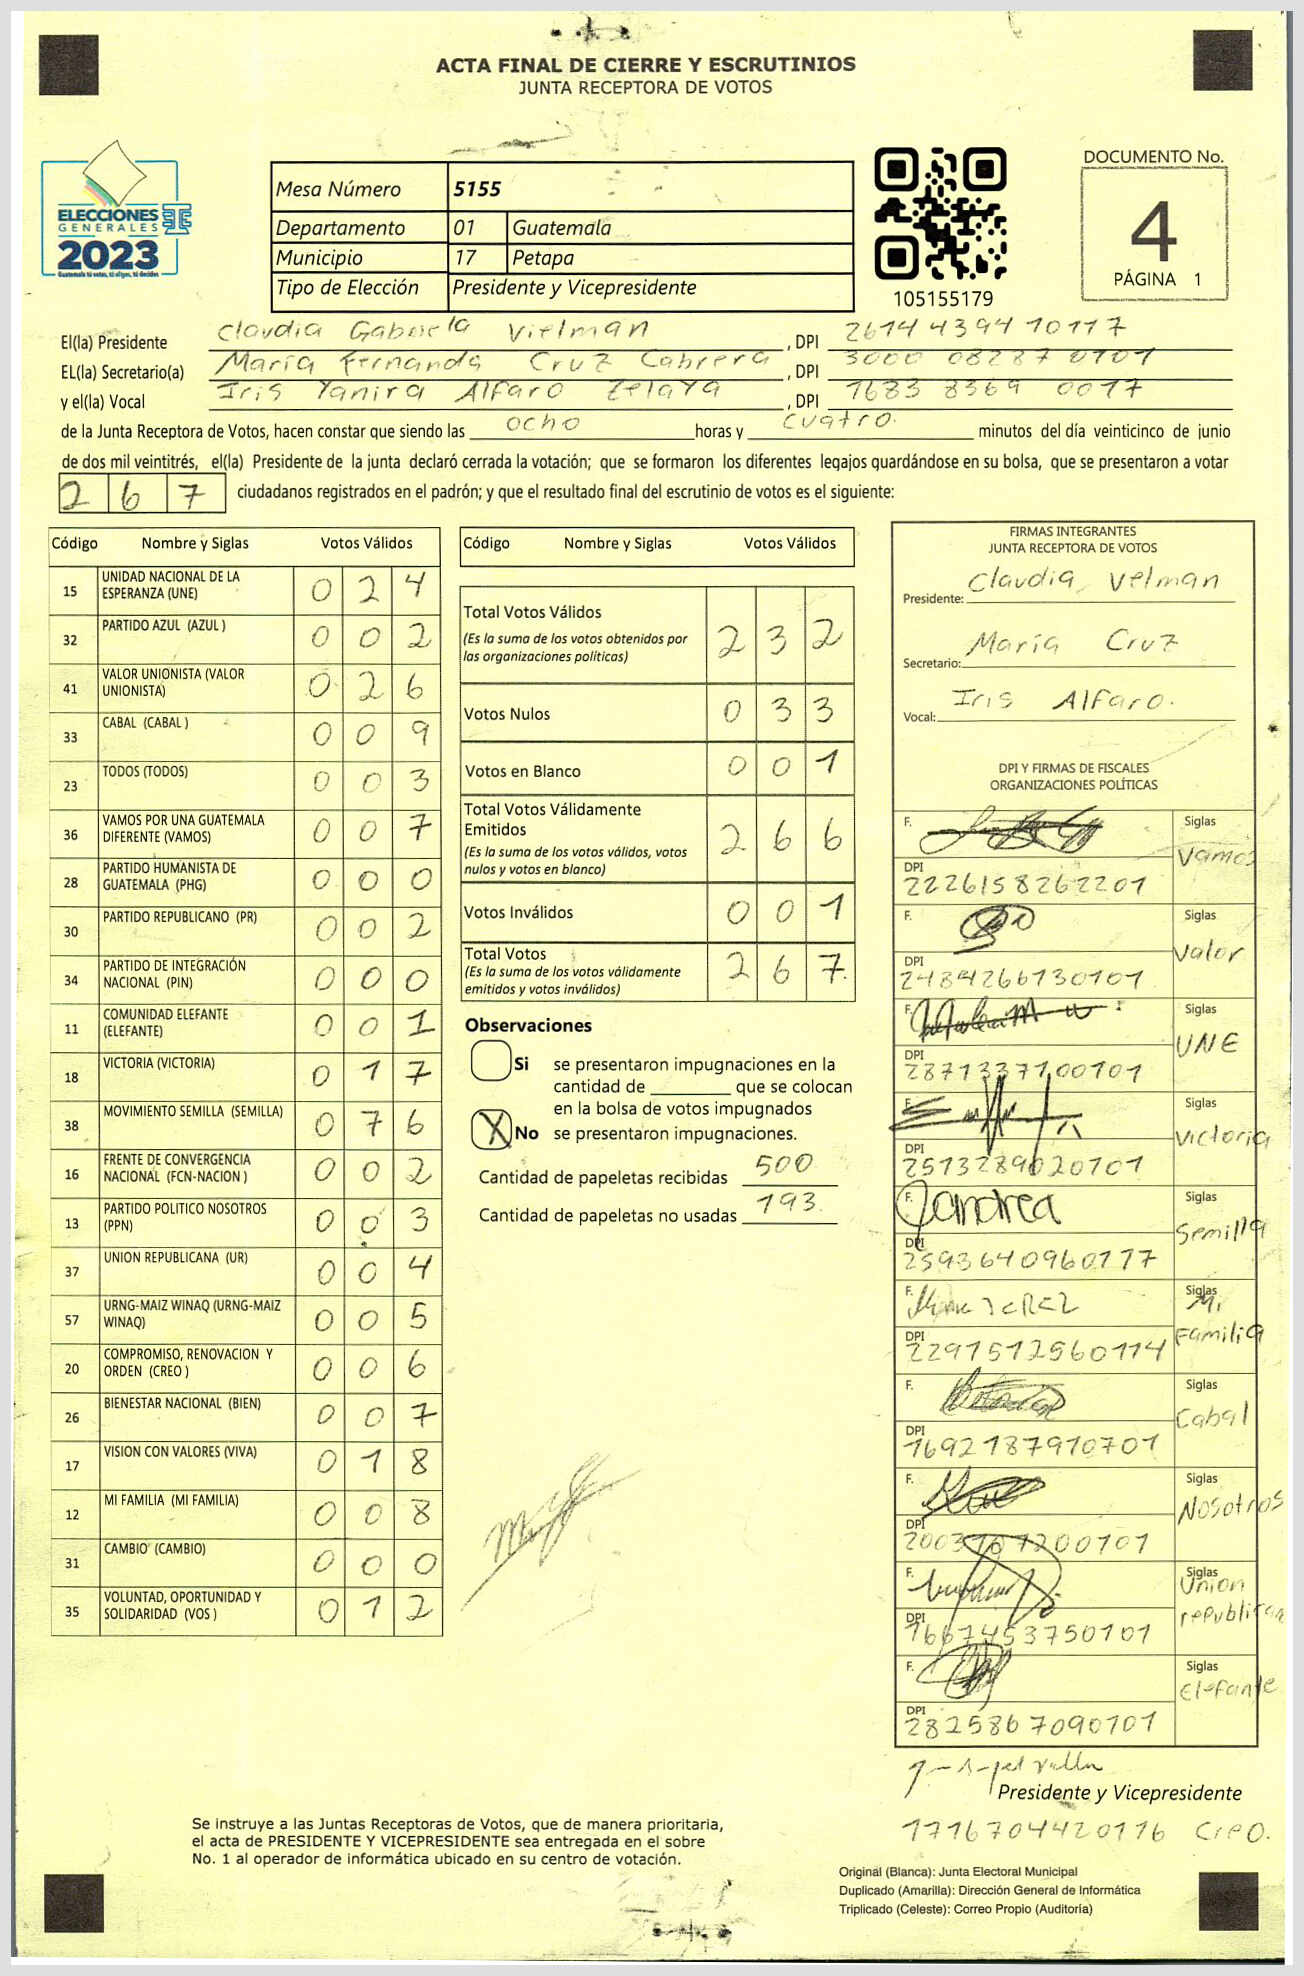 ACTA FINAL DE CIERRE Y ESCRUTINIOS
JUNTA RECEPTORA DE VOTOS
ELECCIONES
GENERALES
2023
Guatemala tú votas, tú eliges, tú decides
Mesa Número 5155
Departamento 01 Guatemala
Municipio 17 Petapa
Tipo de Elección Presidente y Vicepresidente
105155179
DOCUMENTO No.
4
PÁGINA 1
El(la) Presidente Claudia Gabriela Vielman , DPI 2614 4394 10117
EL(la) Secretario(a) María Fernanda Cruz Cabrera , DPI 3000 08287 0101
y el(la) Vocal Iris Yanira Alfaro Zelaya , DPI 1683 8369 0017
de la Junta Receptora de Votos, hacen constar que siendo las ocho horas y cuatro minutos del día veinticinco de junio
de dos mil veintitrés, el(la) Presidente de la junta declaró cerrada la votación; que se formaron los diferentes legajos guardándose en su bolsa, que se presentaron a votar
267 ciudadanos registrados en el padrón; y que el resultado final del escrutinio de votos es el siguiente:
Código Nombre y Siglas Votos Válidos
15 UNIDAD NACIONAL DE LA ESPERANZA (UNE) 0 2 4
32 PARTIDO AZUL (AZUL ) 0 0 2
41 VALOR UNIONISTA (VALOR UNIONISTA) 0 2 6
33 CABAL (CABAL ) 0 0 9
23 TODOS (TODOS) 0 0 3
36 VAMOS POR UNA GUATEMALA DIFERENTE (VAMOS) 0 0 7
28 PARTIDO HUMANISTA DE GUATEMALA (PHG) 0 0 0
30 PARTIDO REPUBLICANO (PR) 0 0 2
34 PARTIDO DE INTEGRACIÓN NACIONAL (PIN) 0 0 0
11 COMUNIDAD ELEFANTE (ELEFANTE) 0 0 1
18 VICTORIA (VICTORIA) 0 1 7
38 MOVIMIENTO SEMILLA (SEMILLA) 0 7 6
16 FRENTE DE CONVERGENCIA NACIONAL (FCN-NACION ) 0 0 2
13 PARTIDO POLITICO NOSOTROS (PPN) 0 0 3
37 UNION REPUBLICANA (UR) 0 0 4
57 URNG-MAIZ WINAQ (URNG-MAIZ WINAQ) 0 0 5
20 COMPROMISO, RENOVACION Y ORDEN (CREO ) 0 0 6
26 BIENESTAR NACIONAL (BIEN) 0 0 7
17 VISION CON VALORES (VIVA) 0 1 8
12 MI FAMILIA (MI FAMILIA) 0 0 8
31 CAMBIO (CAMBIO) 0 0 0
35 VOLUNTAD, OPORTUNIDAD Y SOLIDARIDAD (VOS ) 0 1 2
Código Nombre y Siglas Votos Válidos
Total Votos Válidos 2 3 2
(Es la suma de los votos obtenidos por
las organizaciones políticas)
Votos Nulos 0 3 3
Votos en Blanco 0 0 1
Total Votos Válidamente
Emitidos 2 6 6
(Es la suma de los votos válidos, votos
nulos y votos en blanco)
Votos Inválidos 0 0 1
Total Votos 2 6 7
(Es la suma de los votos válidamente
emitidos y votos inválidos)
Observaciones
Si se presentaron impugnaciones en la
cantidad de ________ que se colocan
en la bolsa de votos impugnados
X No se presentaron impugnaciones.
Cantidad de papeletas recibidas 500
Cantidad de papeletas no usadas 193
FIRMAS INTEGRANTES
JUNTA RECEPTORA DE VOTOS
Presidente: Claudia Velman
Secretario: María Cruz
Vocal: Iris Alfaro.
DPI Y FIRMAS DE FISCALES
ORGANIZACIONES POLÍTICAS
F. Siglas Vamos
DPI 2226158262201
F. Siglas Valor
DPI 2484266130101
F. Siglas UNE
DPI 2871337100101
F. Siglas Victoria
DPI 2513289020101
F. Jandrea Siglas Semilla
DPI 2593640960117
F. Siglas Mi Familia
DPI 2291512560114
F. Siglas Cabal
DPI 1692187910701
F. Siglas Nosotros
DPI 2003101200101
F. Siglas Union republican
DPI 1667453750101
F. Siglas Elefante
DPI 2825867090101
Presidente y Vicepresidente
1716704420116 Creo.
Se instruye a las Juntas Receptoras de Votos, que de manera prioritaria,
el acta de PRESIDENTE Y VICEPRESIDENTE sea entregada en el sobre
No. 1 al operador de informática ubicado en su centro de votación.
Original (Blanca): Junta Electoral Municipal
Duplicado (Amarilla): Dirección General de Informática
Triplicado (Celeste): Correo Propio (Auditoría)